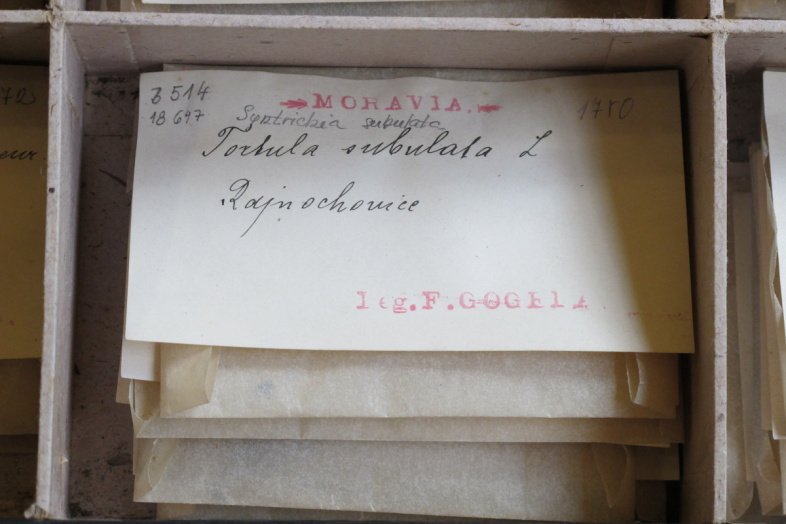 B 514
MORAVIA.
1780
18 697
Syntrichia subulata
Tortula subulata L
Rajnochovice
leg. F. GOGELA